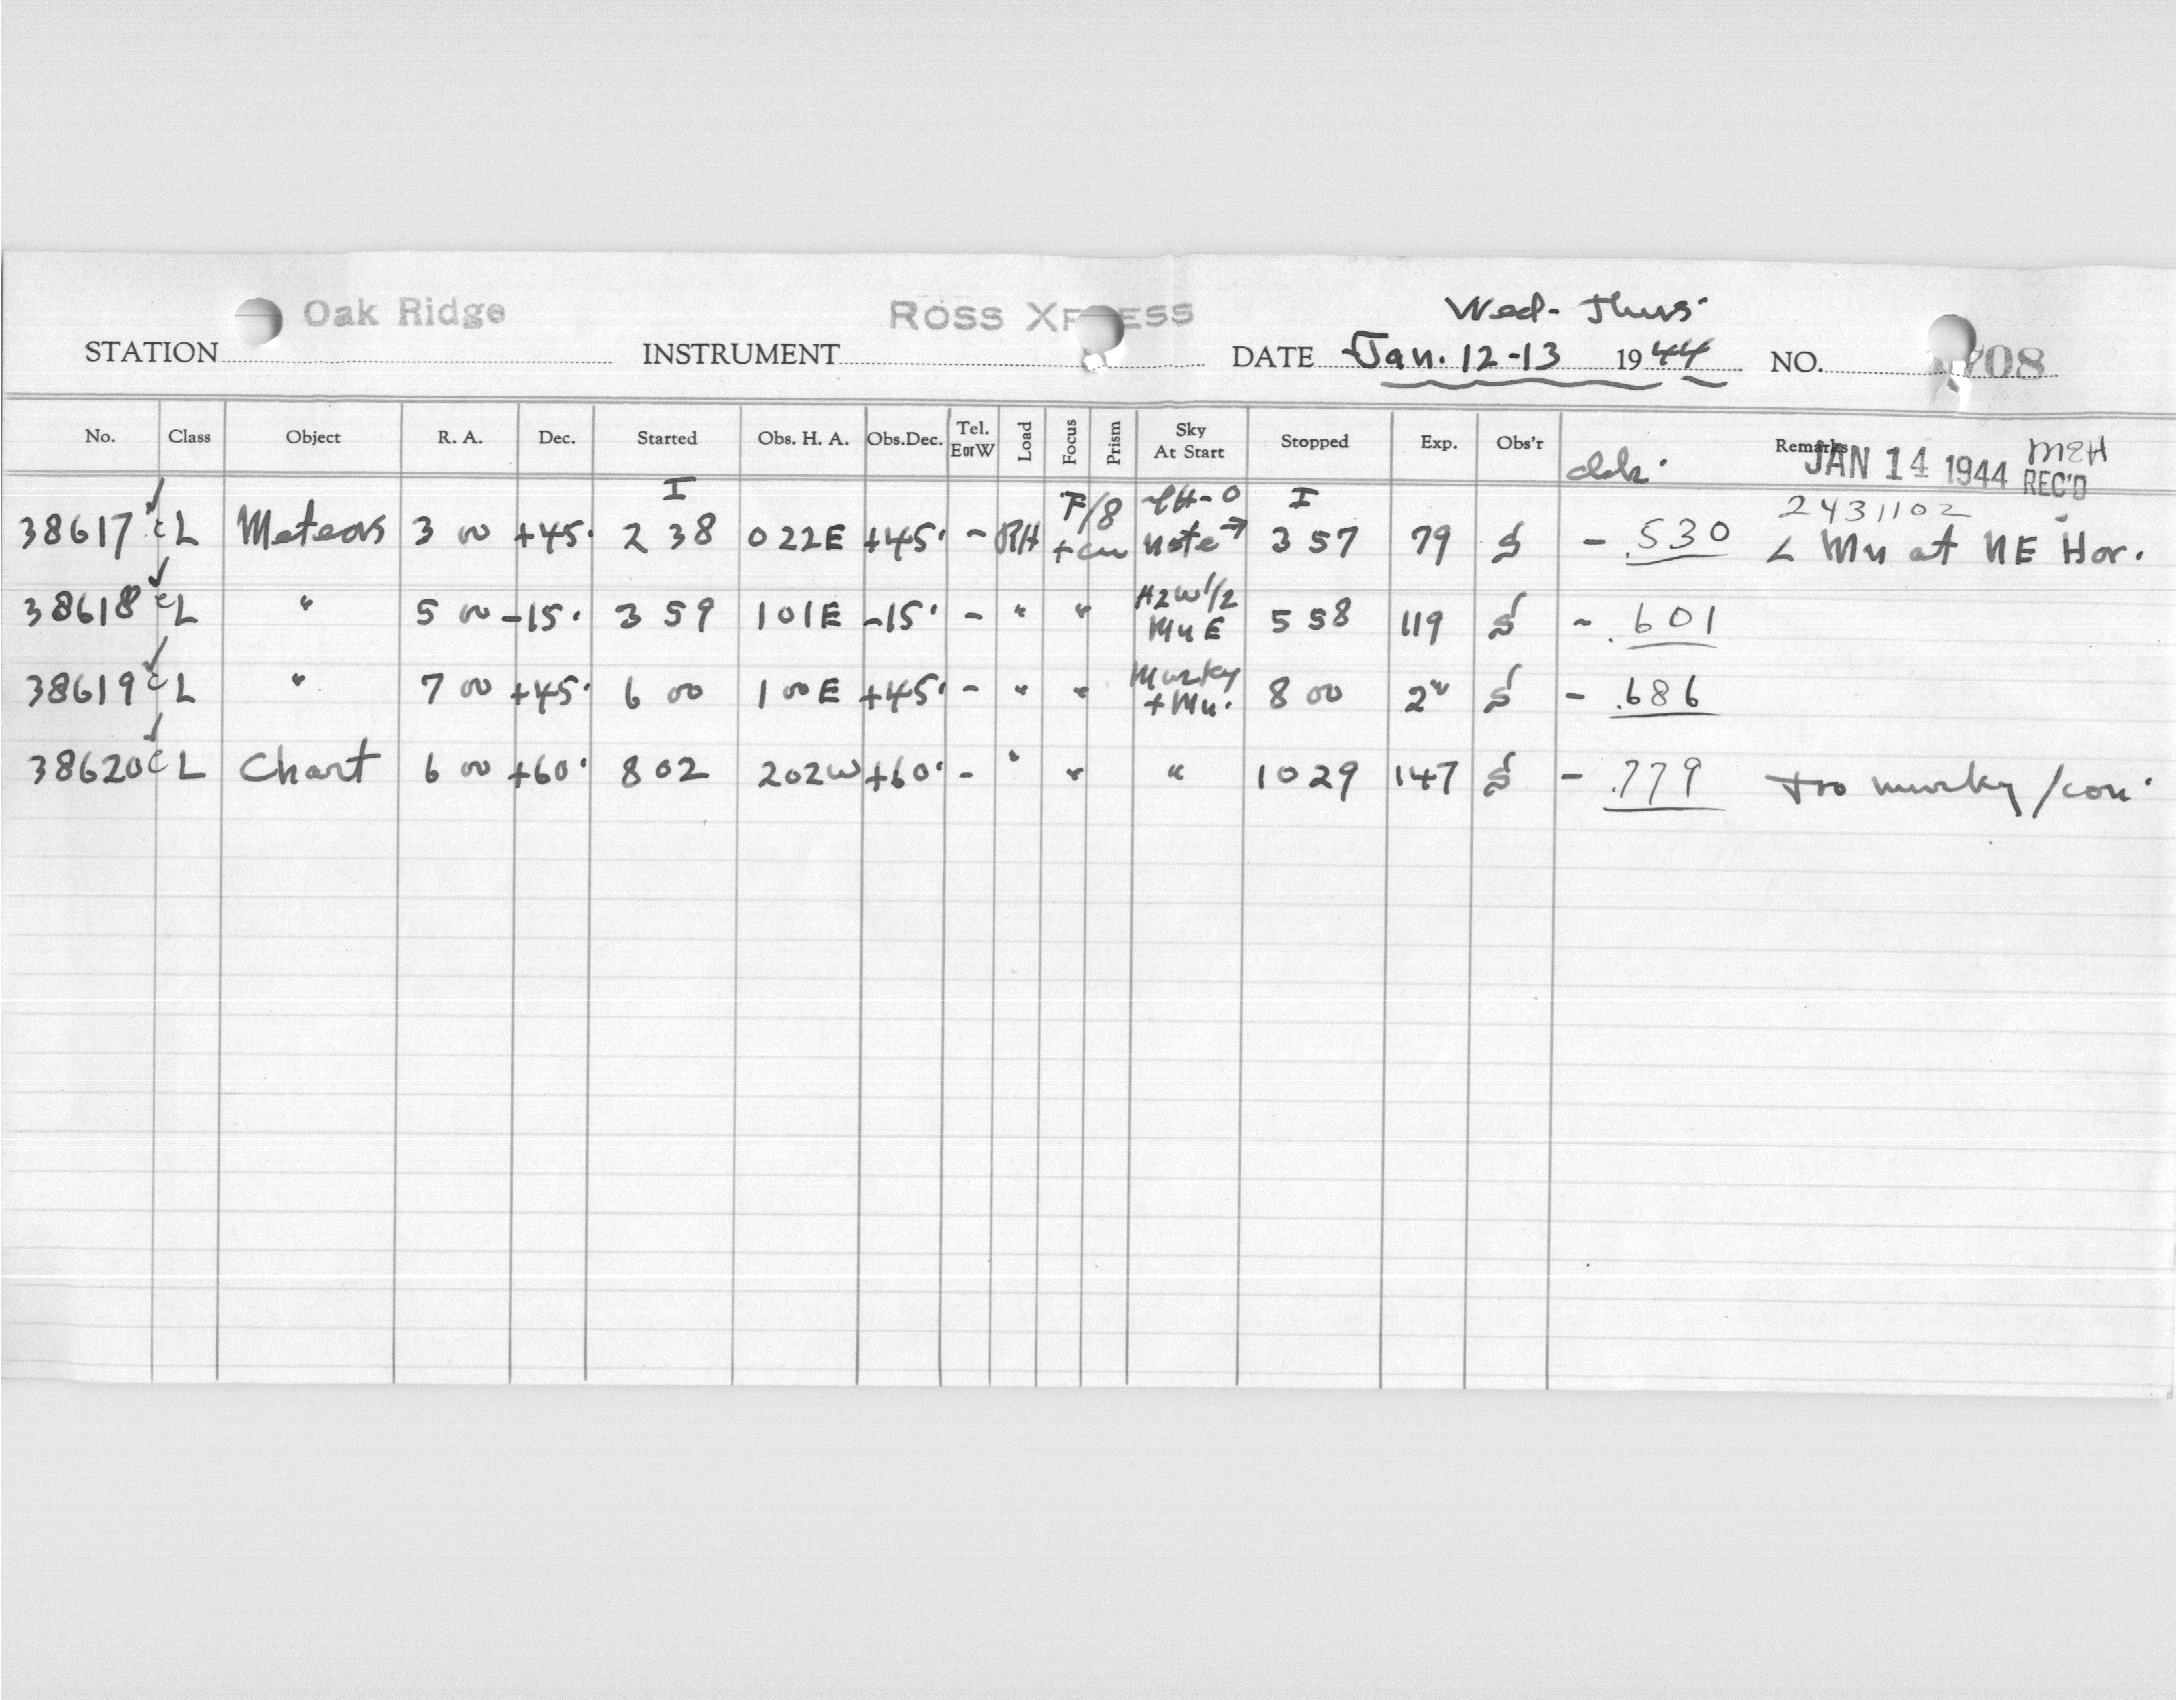 Wed - Thurs.
Oak Ridge ROSS XPRESS
STATION INSTRUMENT DATE Jan. 12-13 1944 NO. 708
No. Class Object R. A. Dec. Started Obs. H. A. Obs.Dec. Tel. E or W Load Focus Prism Sky At Start Stopped Exp. Obs'r Remarks
JAN 14 1944 REC'D MEH
I F/8 I 2431102
38617 c L Meteors 3 00 +45° 2 38 0 22 E +45° - RH + cu note → 3 57 79 S - .530 < Mu at NE Hor.
38618 c L " 5 00 -15° 3 59 1 01 E -15° - " " H2W 1/2 Mu E 5 58 119 S - .601
38619 c L " 7 00 +45° 6 00 1 00 E +45° - " " Murky + Mu. 8 00 2" S - .686
38620 c L Chart 6 00 +60° 8 02 2 02 W +60° - " " " 10 29 147 S - .779 too murky / con.